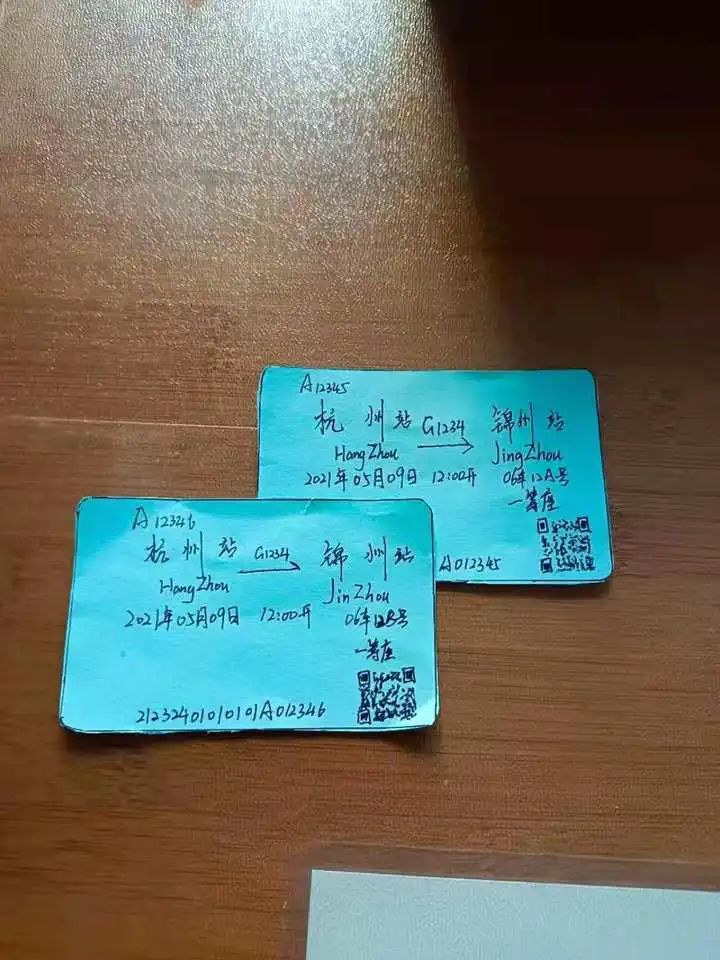 A12345
杭州站 G1234 锦州站
HangZhou JingZhou
2021年05月09日 12:00开 06车12A号
一等座
A012345
A12346
杭州站 G1234 锦州站
HangZhou JinZhou
2021年05月09日 12:00开 06车12B号
一等座
2123240101010101A012346